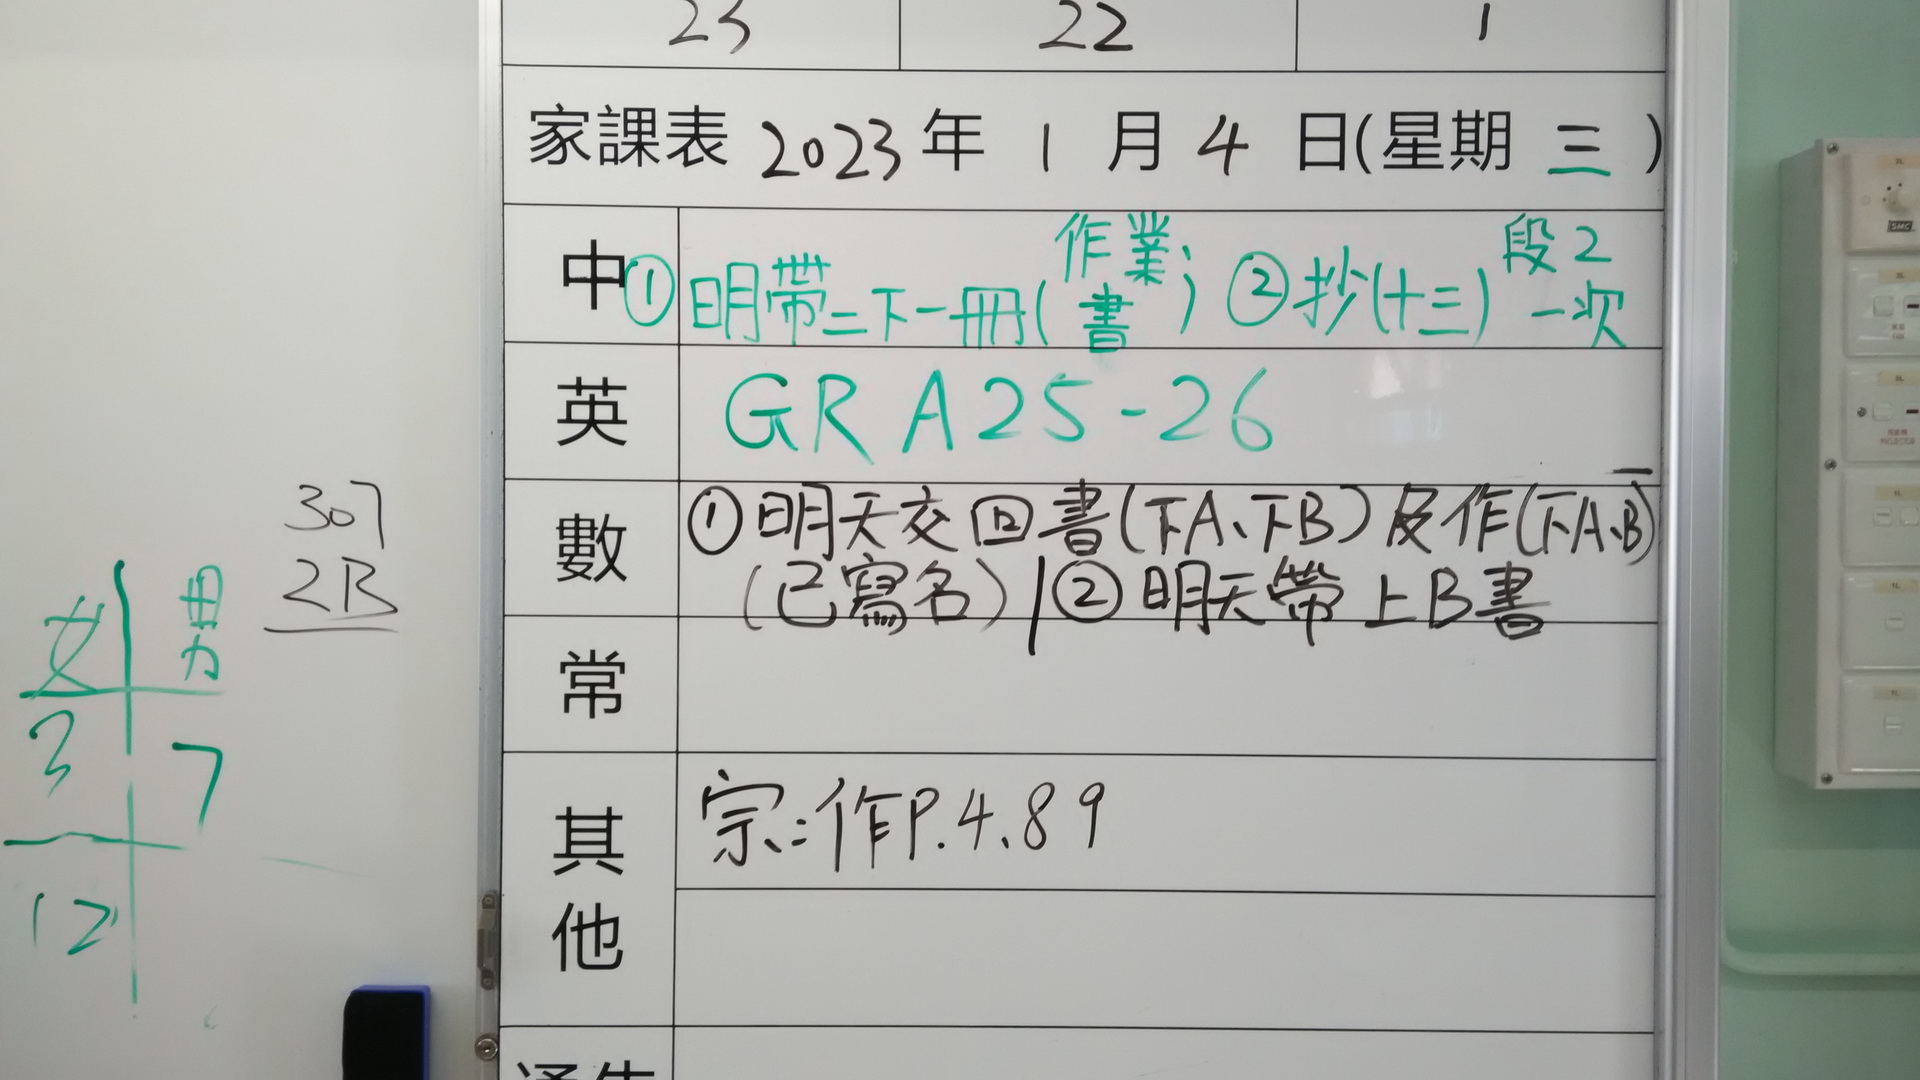 23 22 1
家課表 2023年 1月 4日(星期 三)
中 ①明帶二下一冊(作業書) ②抄(十三)段2一次
英 GR A25-26
數 ①明天交回書(下A、下B)及作(下A、B)
(已寫名) / ②明天帶上B書
常
其他 宗:作P.4、89
307
2B
女 男
3 7
12
SMC